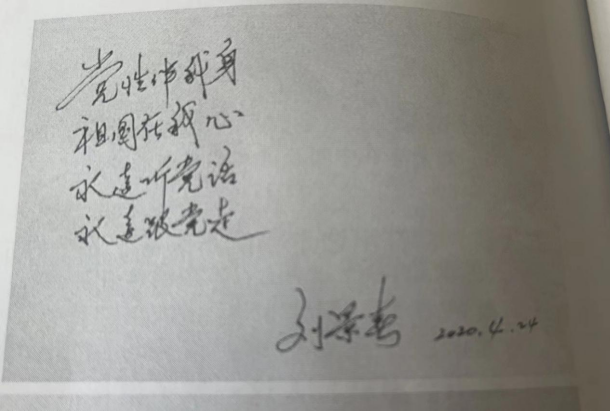 党性伴我身
祖国在我心
永远听党话
永远跟党走
刘景春 2020.4.24